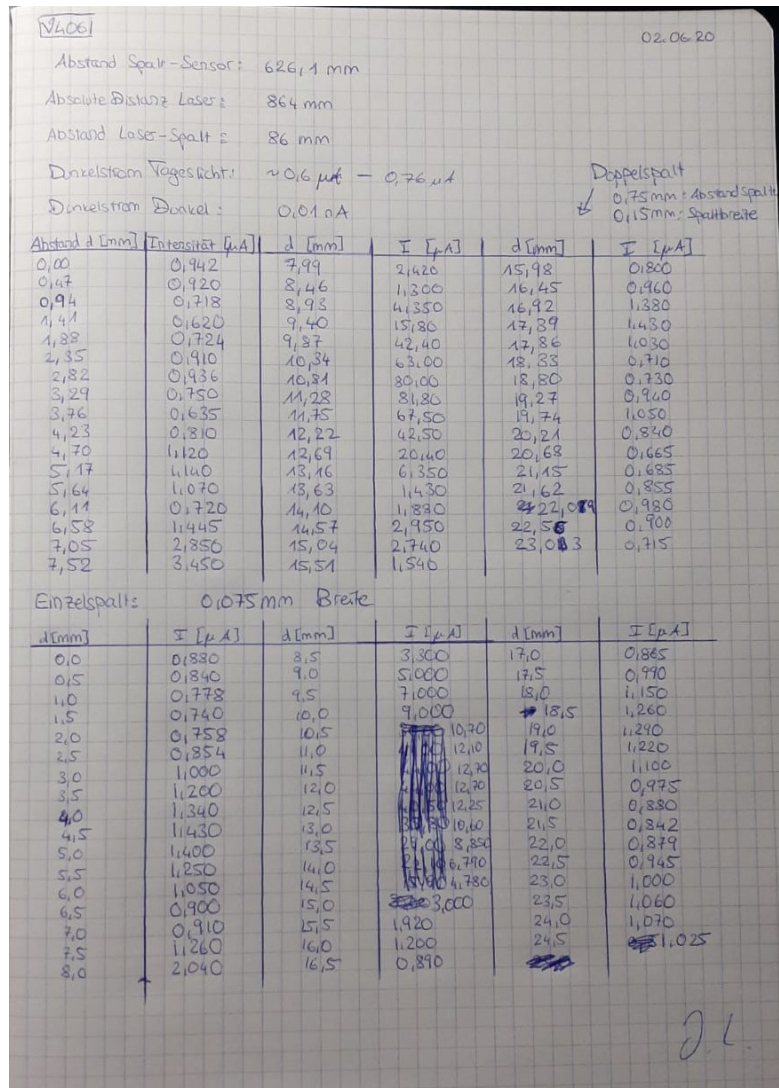 V406
02.06.20
Abstand Spalt-Sensor: 626,1 mm
Absolute Distanz Laser: 864 mm
Abstand Laser-Spalt: 86 mm
Dunkelstrom Tageslicht: ~0,6 µA - 0,76 µA
Dunkelstrom Dunkel: 0,01 nA
Doppelspalt
0,75mm: Abstand Spalte
0,15mm: Spaltbreite
Abstand d [mm] Intensität [µA] d [mm] I [µA] d [mm] I [µA]
0,00 0,942 7,99 2,420 15,98 0,800
0,47 0,920 8,46 1,300 16,45 0,960
0,94 0,718 8,93 4,350 16,92 1,380
1,41 0,620 9,40 15,80 17,39 1,430
1,88 0,724 9,87 42,40 17,86 1,030
2,35 0,910 10,34 63,00 18,33 0,710
2,82 0,936 10,81 80,00 18,80 0,730
3,29 0,750 11,28 81,80 19,27 0,940
3,76 0,635 11,75 67,50 19,74 1,050
4,23 0,810 12,22 42,50 20,21 0,840
4,70 1,120 12,69 20,40 20,68 0,665
5,17 1,140 13,16 6,350 21,15 0,685
5,64 1,070 13,63 1,430 21,62 0,855
6,11 0,720 14,10 1,880 22,09 0,980
6,58 1,445 14,57 2,950 22,56 0,900
7,05 2,850 15,04 2,740 23,03 0,715
7,52 3,450 15,51 1,540
Einzelspalt: 0,075mm Breite
d[mm] I [µA] d [mm] I [µA] d [mm] I [µA]
0,0 0,880 8,5 3,300 17,0 0,865
0,5 0,840 9,0 5,000 17,5 0,990
1,0 0,778 9,5 7,000 18,0 1,150
1,5 0,740 10,0 9,000 18,5 1,260
2,0 0,758 10,5 10,70 19,0 1,290
2,5 0,854 11,0 12,10 19,5 1,220
3,0 1,000 11,5 12,70 20,0 1,100
3,5 1,200 12,0 12,70 20,5 0,975
4,0 1,340 12,5 12,25 21,0 0,880
4,5 1,430 13,0 10,60 21,5 0,842
5,0 1,400 13,5 8,850 22,0 0,879
5,5 1,250 14,0 6,790 22,5 0,945
6,0 1,050 14,5 4,780 23,0 1,000
6,5 0,900 15,0 3,000 23,5 1,060
7,0 0,910 15,5 1,920 24,0 1,070
7,5 1,260 16,0 1,200 24,5 1,025
8,0 2,040 16,5 0,890
J.L.